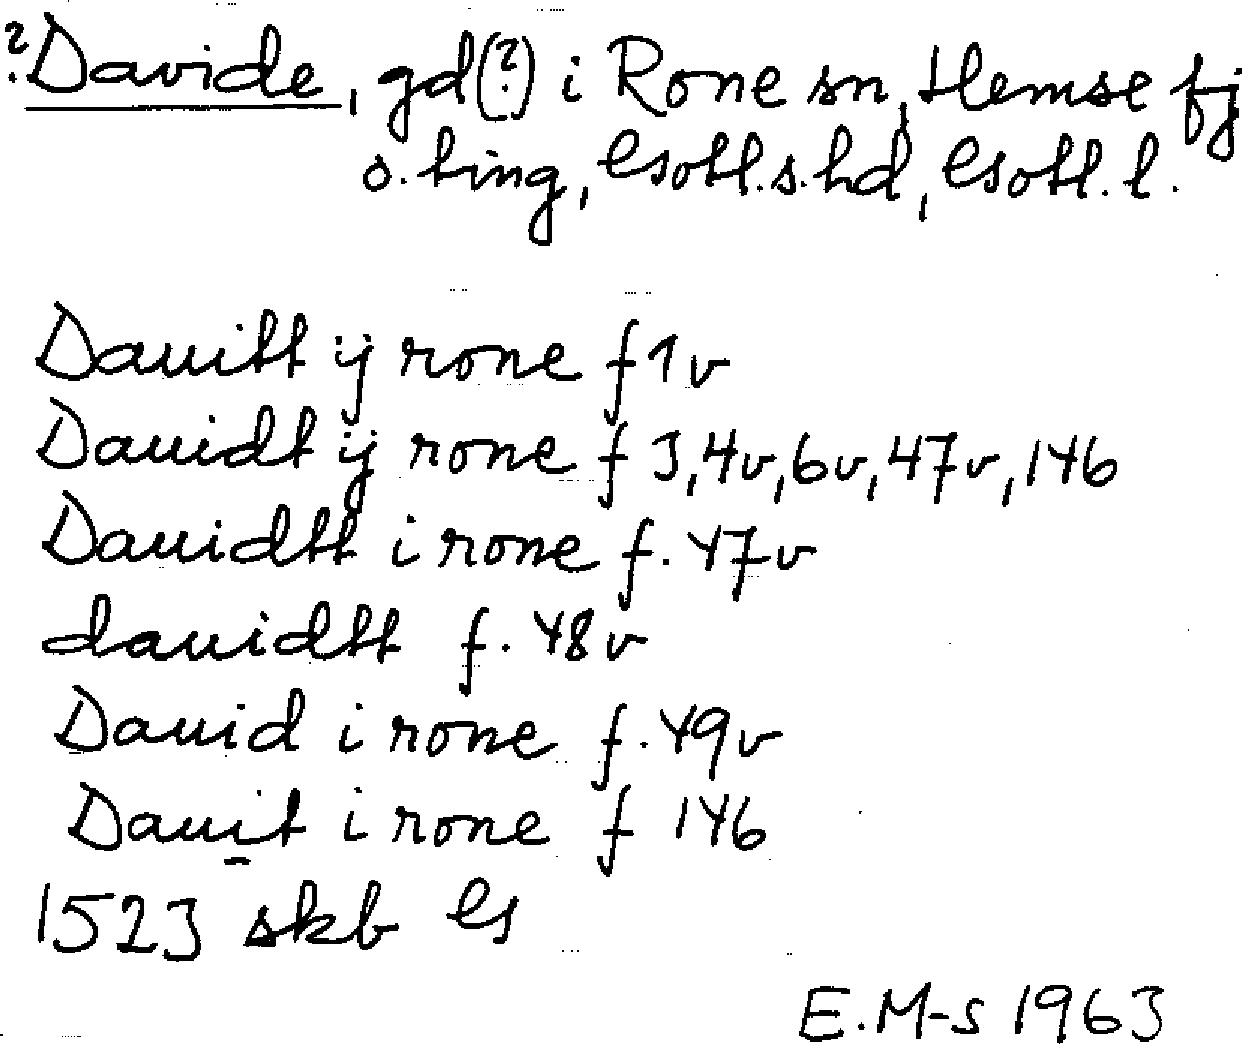 ?Davide, gd(?) i Rone sn, Hemse fj
o. ting, Gotl. s. hd, Gotl. l.
Dauitt ij rone f 1v
Dauidt ij rone f 3, 4v, 6v, 47v, 146
Dauidtt i rone f. 47v
dauidtt f. 48v
Dauid i rone f. 49v
Dauit i rone f 146
1523 skb G
E.M-s 1963